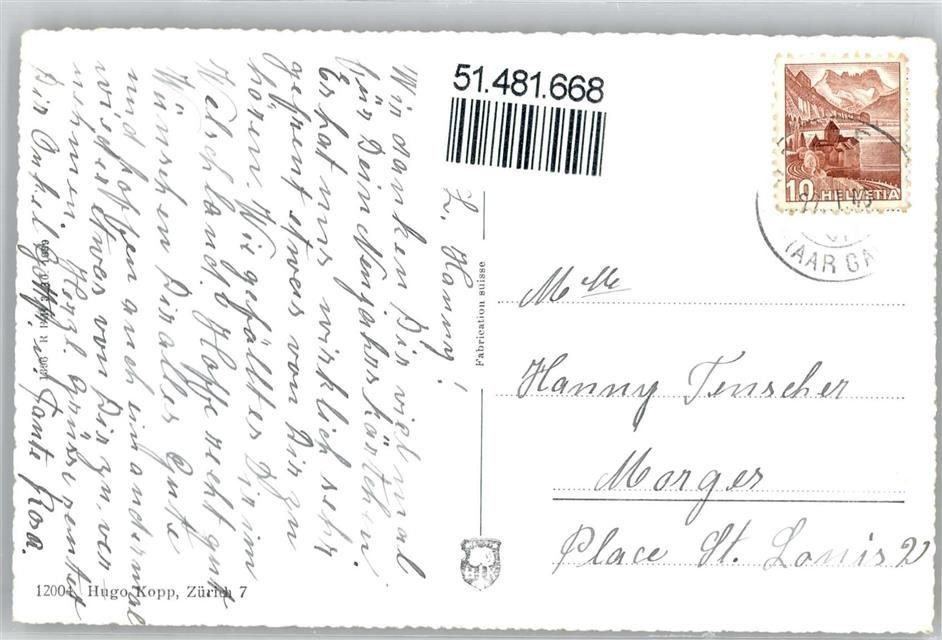 51.481.668
10 HELVETIA
(AARGA
L. Hanny!
Wir danken Dir vielmal
für Dein Neujahrskärtchen.
Es hat uns wirklich sehr
gefreut etwas von Dir zu
hören. Wie gefällt es Dir im
Welschland. Hoffe recht gut
Wünschen Dir alles Gute
und hoffen auch ein andermal
wieder etwas von Dir zu ver
nehmen. Herzl. Grüsse sendet
Dir Onkel u. Tante Rosa.
Fabrication suisse
Mlle
Hanny Tenscher
Morges
Place St. Louis 2
12004 Hugo Kopp, Zürich 7